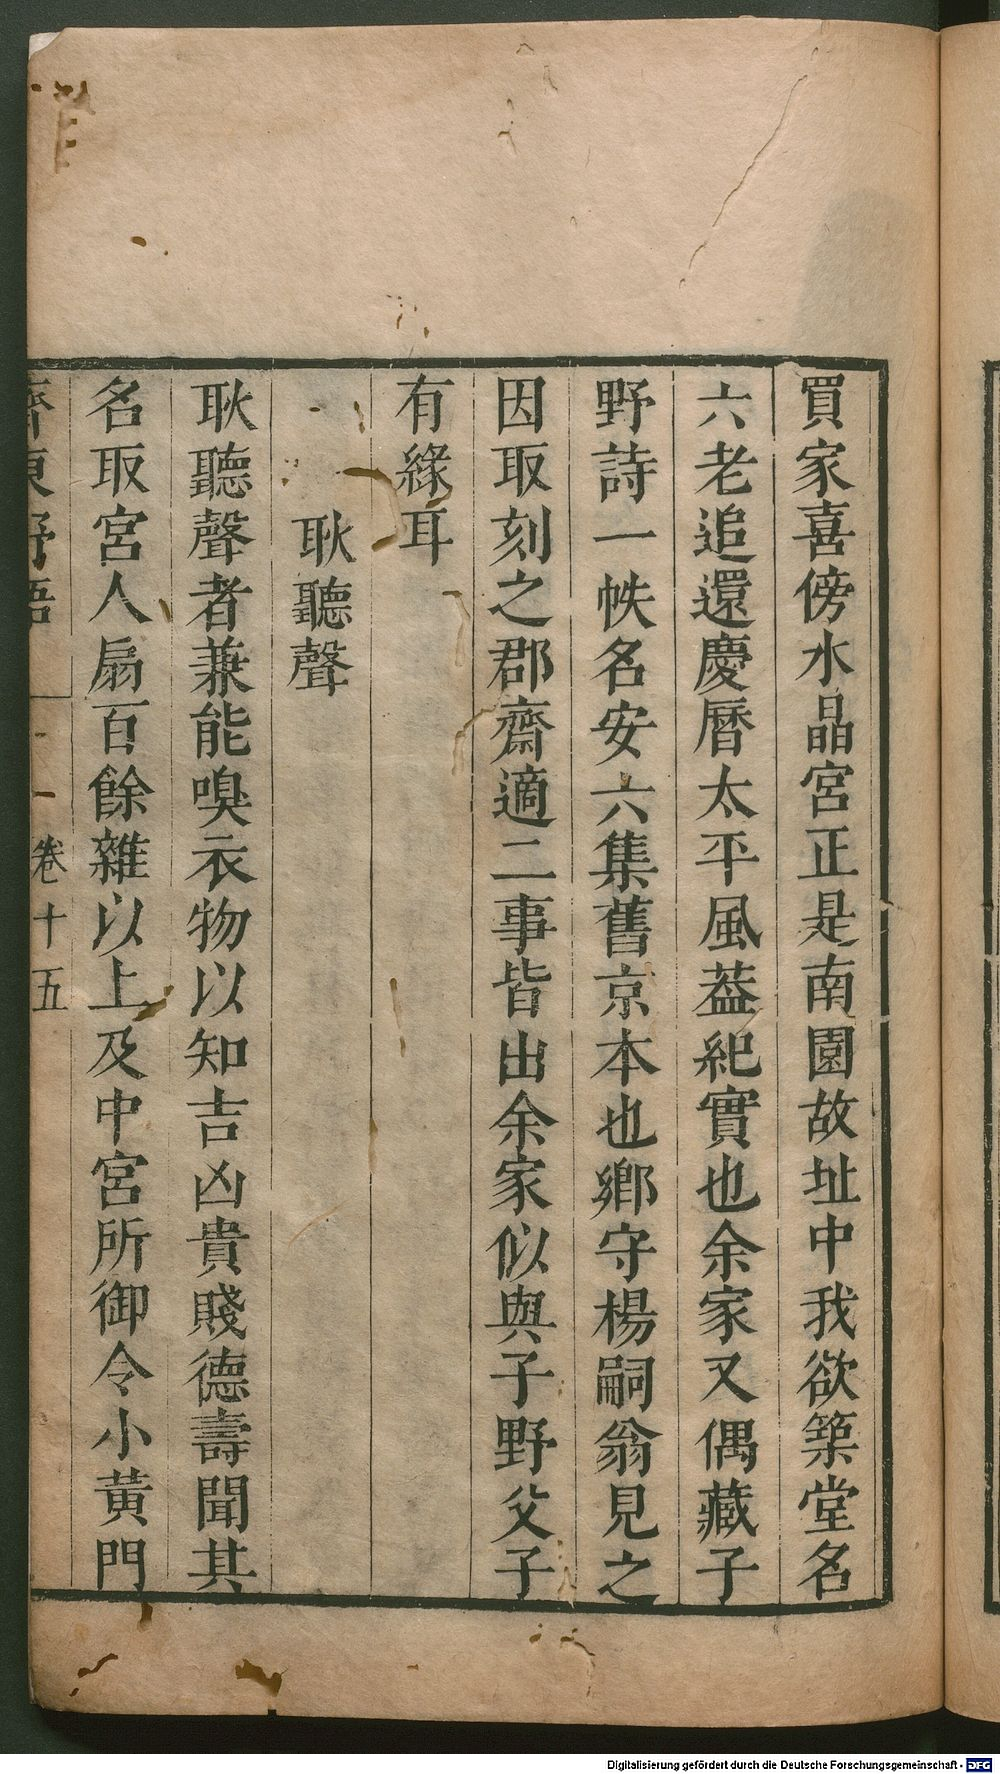 買家喜傍水晶宮正是南園故址中我欲築堂名
六老追還慶曆太平風葢紀實也余家又偶藏子
野詩一帙名安六集舊京本也鄉守楊嗣翁見之
因取刻之郡齋適二事皆出余家似與子野父子
有緣耳
耿聽聲
耿聽聲者兼能嗅衣物以知吉凶貴賤德壽聞其
名取宮人扇百餘雜以上及中宮所御令小黃門
齊東野語
卷十五
Digitalisierung gefördert durch die Deutsche Forschungsgemeinschaft - DFG